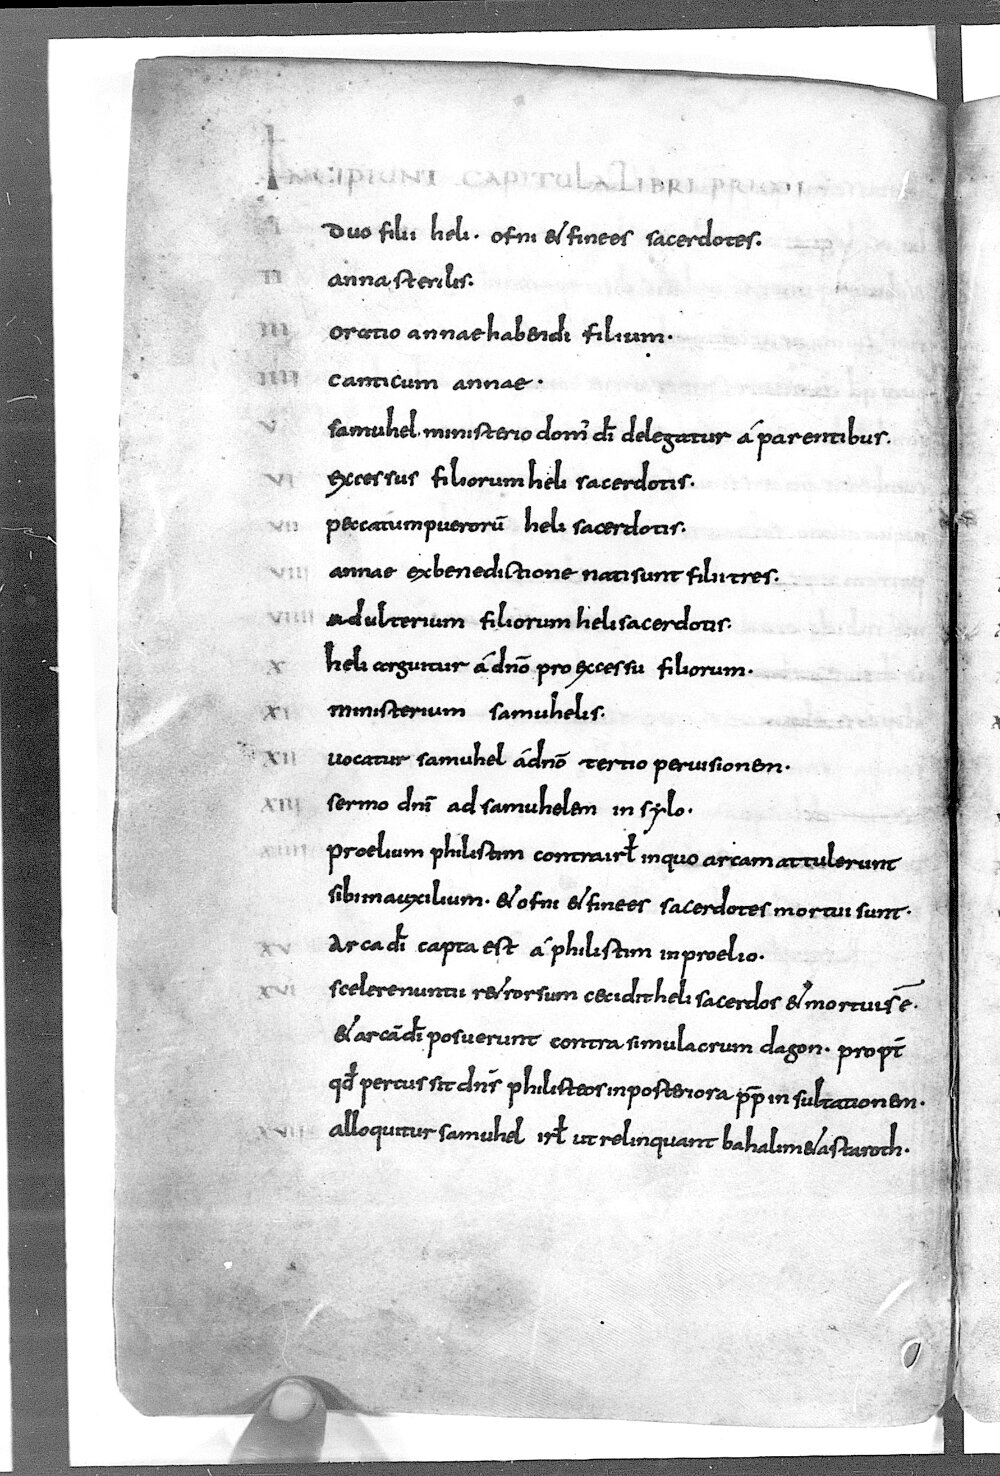 INCIPIUNT CAPITULA LIBRI PRIMI
I duo filii heli. ofni & finees sacerdotes.
II anna sterilis.
III oratio annae habendi filium.
IIII canticum annae.
V samuhel ministerio dom' dī delegatur á parentibus.
VI excessus filiorum heli sacerdotis.
VII peccatum puerorū heli sacerdotis.
VIII annae ex benedictione nati sunt filii tres.
VIIII adulterium filiorum heli sacerdotis.
X heli arguitur á dnō pro excessu filiorum.
XI ministerium samuhelis.
XII uocatur samuhel á dnō tertio per uisionem.
XIII sermo dnī ad samuhelem in sylo.
XIIII proelium philistim contra irł in quo arcam attulerunt
sibi in auxilium. & ofni & finees sacerdotes mortui sunt.
XV Arca dī capta est á philistim in proelio.
XVI scelere nuntii r&rorsum cecidit heli sacerdos & mortuus ē.
& arcā dī posuerunt contra simulacrum dagon. propt̄
qđ percussit dn̄s philisteos in posteriora pp̄ insultationem.
XVII alloquitur samuhel irł ut relinquant bahalim & astaroth.